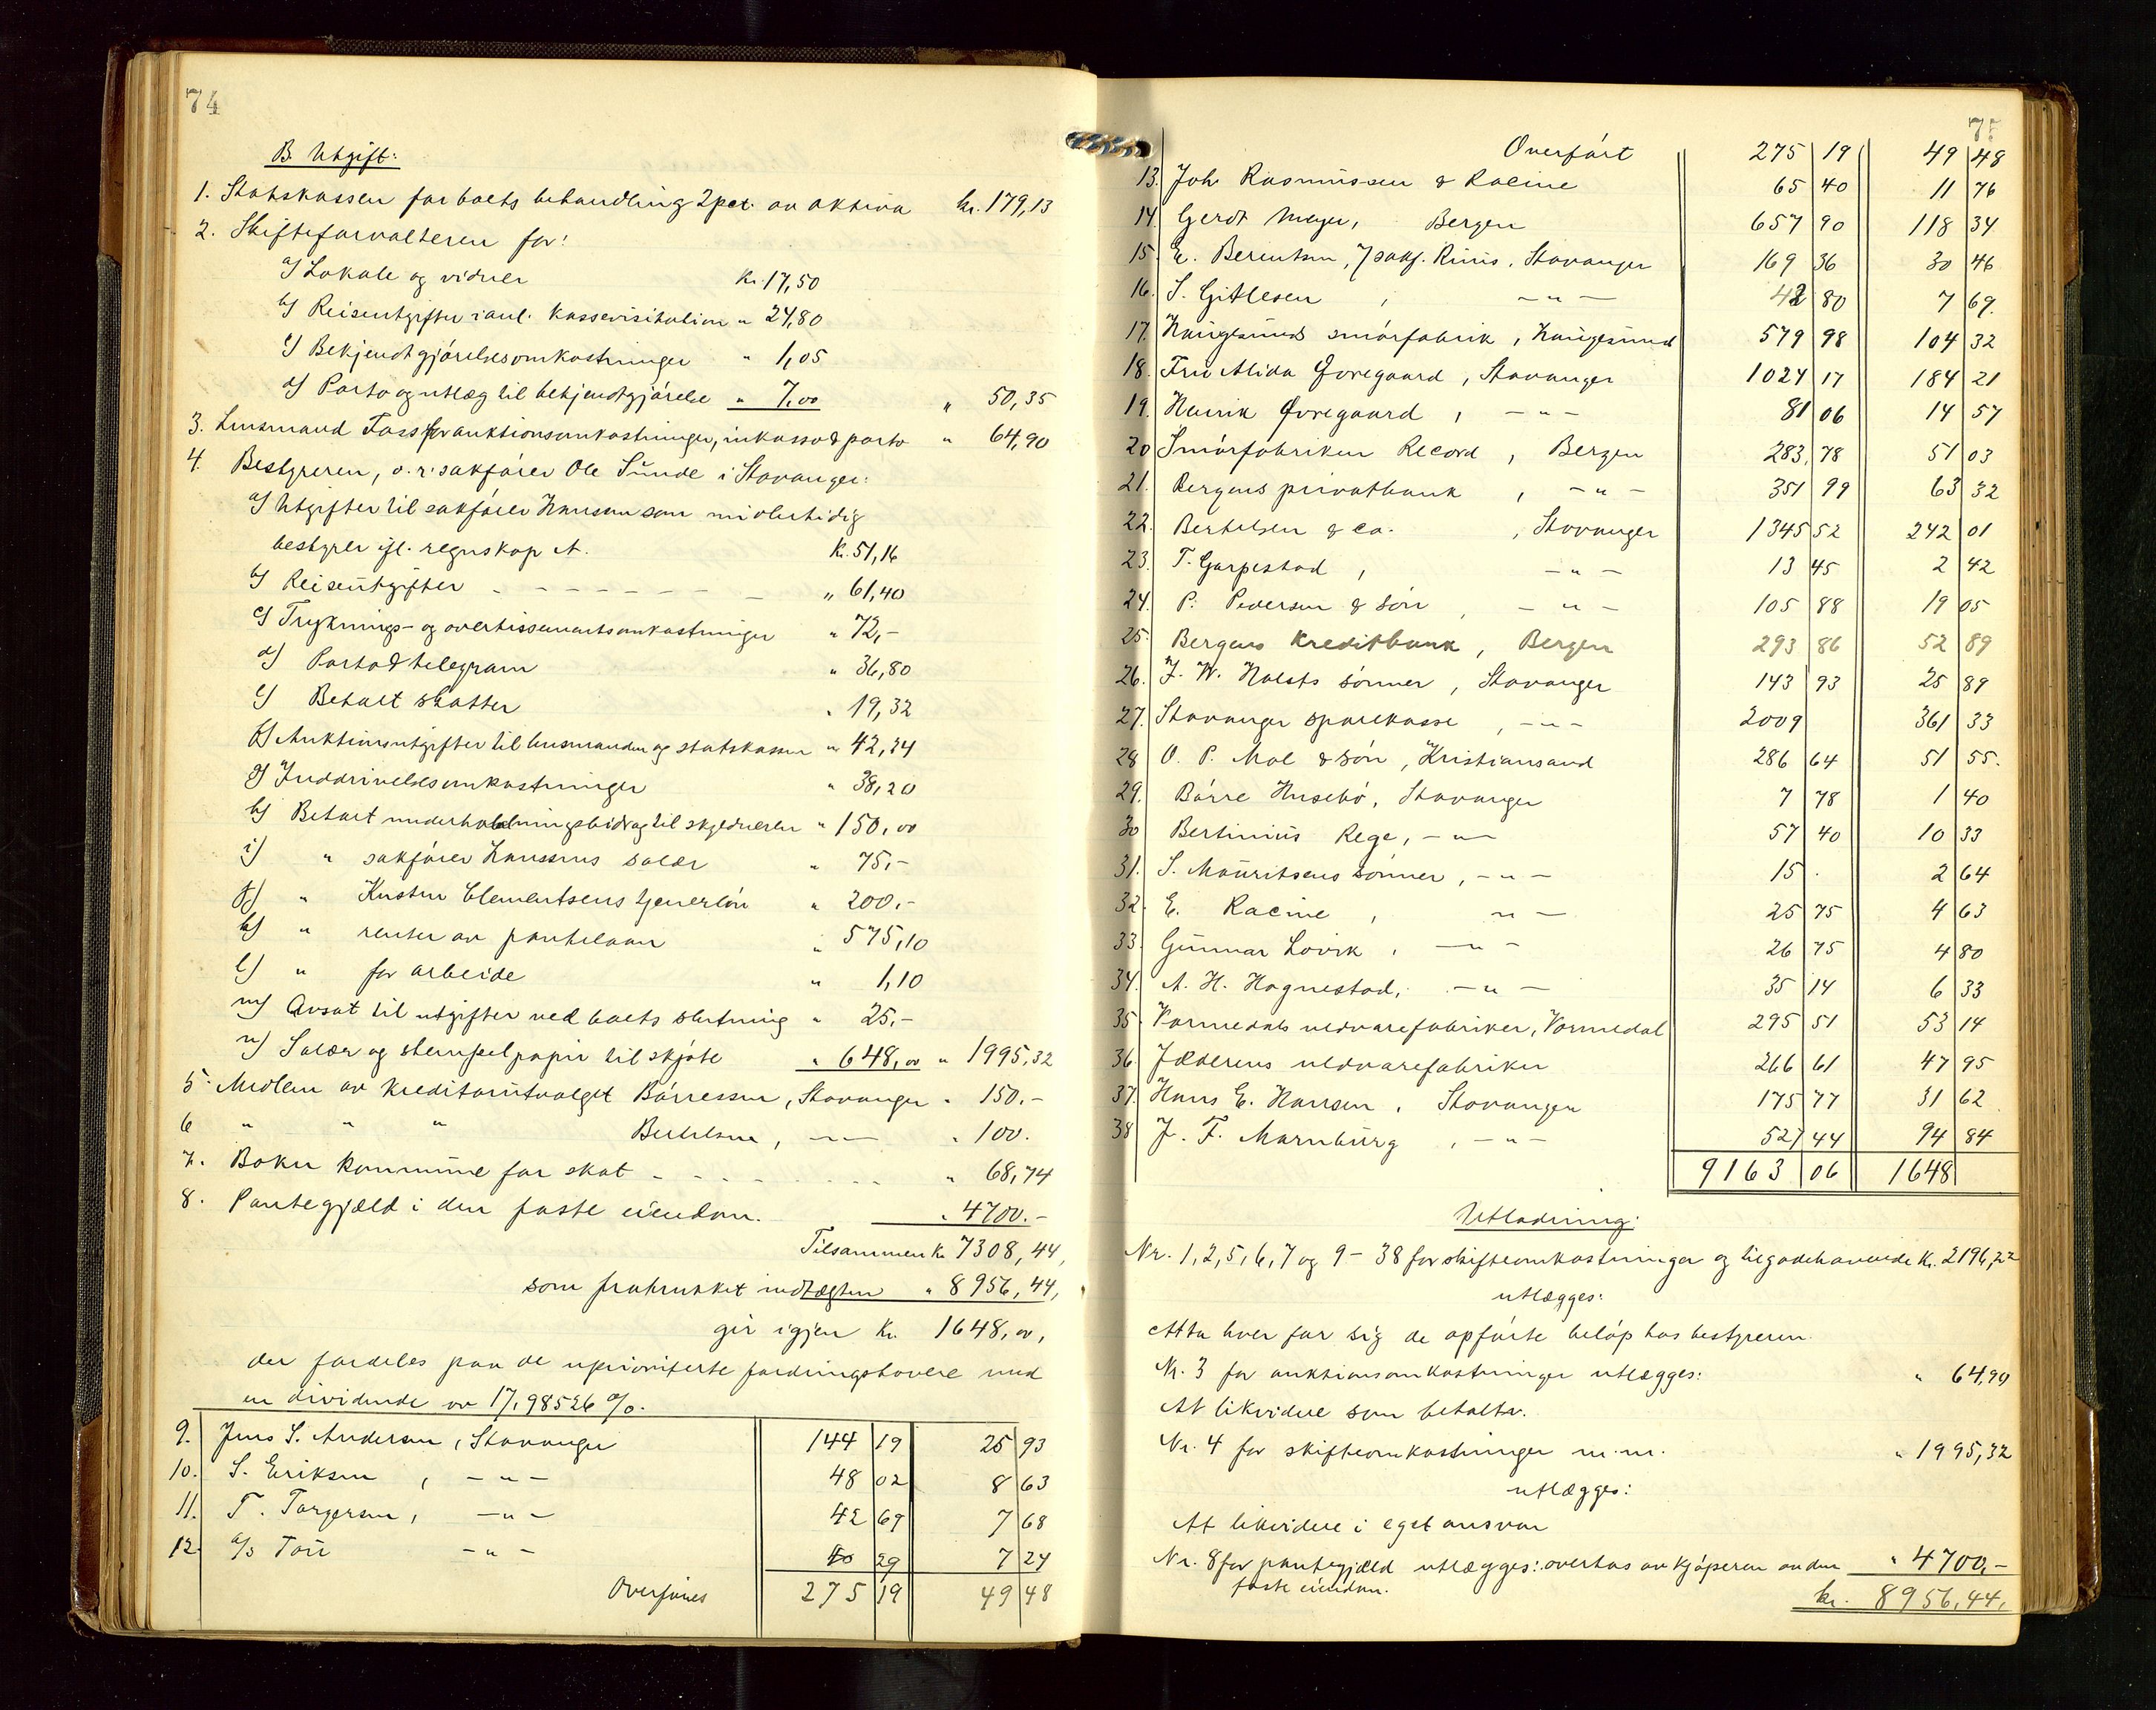 74
B. Utgift:
1. Statskassen for boets behandling 2 pct. av aktiva kr. 179,13
2. Skifteforvalteren for:
a) Lokale og vidner kr. 17,50
b) Reiseutgifter i anl. kassevisitation " 24,80
c) Bekjendtgjørelsesomkostninger " 1,05
d) Porto og utlæg til bekjendtgjørelse " 7,00 " 50,35
3. Lensmand Foss for auktionsomkostninger, inkasso & porto " 64,90
4. Bestyreren, o. r. sakfører Ole Sunde i Stavanger:
a) Utgifter til sakfører Hanssen som midlertidig
bestyrer ifl. regnskap A. kr. 51,16
b) Reiseutgifter - - - - - - - " 61,40
c) Tryknings- og avertissementsomkostninger " 72,-
d) Porto & telegram " 36,80
e) Betalt skatter " 19,32
f) Auktionsutgifter til lensmanden og statskassen " 42,24
g) Inddrivelsesomkostninger " 38,20
h) Betalt underholdningsbidrag til skyldneren " 150,00
i) " sakfører Hanssens salær " 75,-
j) " Kristen Clementsens tjenerløn " 200,-
k) " renter av pantelaan " 575,10
l) " for arbeide " 1,10
m) Avsat til utgifter ved boets slutning " 25,-
n) Salær og stempelpapir til skjøte " 648,00 " 1995,32
5. Medlem av kreditorutvalget Børressen, Stavanger " 150.-
6 " " " Bertelsen, -"- " 100.
7. Bokn kommune for skat - - - - - - " 68,74
8. Pantegjæld i den faste eiendom. " 4700.-
Tilsammen kr 7308,44,
som fratrukket indtægten " 8956,44,
gir igjen kr. 1648,00,
der fordeles paa de uprioriterte fordringshavere med
en dividende av 17,98526 %.
9. Jens S. Andersen, Stavanger 144 19 25 93
10. S. Eriksen, -"- 48 02 8 63
11. T. Torgersen, -"- 42 69 7 68
12. a/s Tou -"- 40 29 7 24
Overføres 275 19 49 48
75
Overført 275 19 49 48
13. Joh Rasmussen & Racine 65 40 11 76
14. Gerdt Meyer, Bergen 657 90 118 34
15. E. Berentsen, / sakf. Riiis, Stavanger 169 36 30 46
16. S. Gitlesen, -"- 42 80 7 69.
17. Haugesunds smørfabrik, Haugesund 579 98 104 32
18. Fru Alida Øvregaard, Stavanger 1024 17 184 21
19. Henrik Øvregaard, -"- 81 06 14 57
20 Smørfabriken Record, Bergen 283, 78 51 03
21. Bergens privatbank, -"- 351 99 63 32
22. Bertelsen & co., Stavanger 1345 52 242 01
23. T. Garpestad, -"- 13 45 2 42
24. P. Pedersen & søn, -"- 105 88 19 05
25. Bergens Kreditbank, Bergen 293 86 52 89
26. J. W. Holsts sønner, Stavanger 143 93 25 89
27. Stavanger sparekasse, -"- 2009 361 33
28 O. P. Moe & søn, Kristiansand 286 64 51 55.
29. Børre Husebø, Stavanger 7 78 1 40
30 Bertinius Rege, -"- 57 40 10 33
31. S. Mauritsens sønner, -"- 15 . 2 64
32. E. Racine, -"- 25 75 4 63
33. Gunnar Lovik, -"- 26 75 4 80
34. A. H. Hognestad, -"- 35 14 6 33
35. Vormedals uldvarefabriker, Vormedal 295 51 53 14
36. Jæderens uldvarefabriker 266 61 47 95
37. Hans E. Hansen, Stavanger 175 77 31 62
38 J. F. Marnburg, -"- 527 44 94 84
9163 06 1648
Utlodning:
Nr. 1, 2, 5, 6, 7 og 9 - 38 for skifteomkostninger og tilgodehavende kr. 2196,22
utlægges:
Atta hver for sig de opførte beløp hos bestyreren.
Nr. 3 for auktionsomkostninger utlægges: " 64,90
At likvidere som betalte.
Nr. 4 for skifteomkostninger m. m. " 1995,32
utlægges:
At likvidere i eget ansvar
Nr. 8 for pantegjæld utlægges: overtas av kjøperen av den " 4700,-
faste eiendom.
kr. 8956,44,